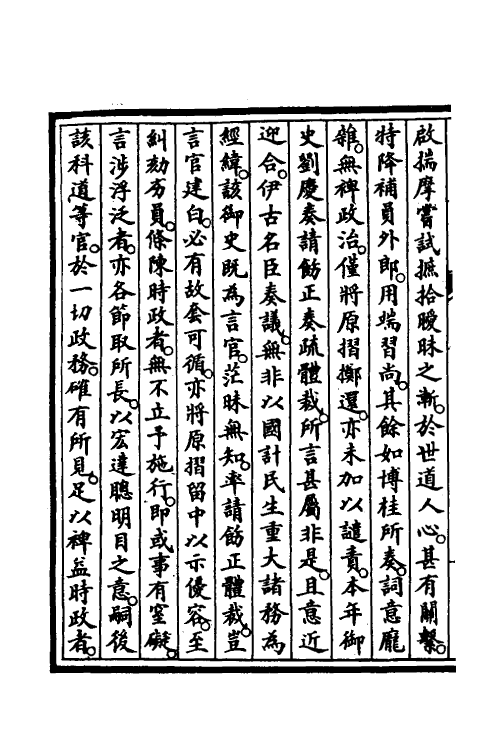 啟揣摩嘗試摭拾曖昧之漸。於世道人心。甚有關繫。
特降補員外郎。用端習尚。其餘如博桂所奏。詞意龐
雜。無裨政治。僅將原摺擲還。亦未加以譴責。本年御
史劉慶奏請飭正奏疏體裁。所言甚屬非是。且意近
迎合。伊古名臣奏議。無非以國計民生重大諸務為
經緯。該御史既為言官。茫昧無知。率請飭正體裁。豈
言官建白。必有故套可循。亦將原摺留中以示優容。至
糾劾夯員。條陳時政者。無不立予施行。即或事有窒礙。
言涉浮泛者。亦各節取所長。以宏達聰明目之意。嗣後
該科道等官。於一切政務。確有所見。足以裨益時政者。